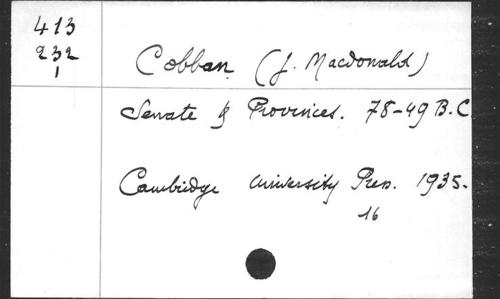 413
232
1
Cobban (J. Macdonald)
Senate & Provinces. 78-49 B.C
Cambridge University Press. 1935.
16